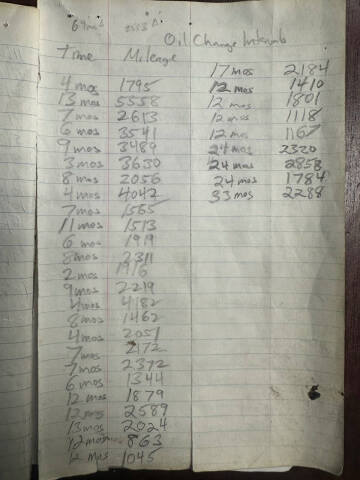 Oil Change Intervals
Time Mileage
4 mos 1795
13 mos 5558
7 mos 2613
6 mos 3541
9 mos 3489
3 mos 3630
8 mos 2056
4 mos 4042
7 mos 1565
11 mos 1513
6 mos 1919
8 mos 2311
2 mos 1916
9 mos 2219
4 mos 4182
8 mos 1462
4 mos 2051
7 mos 2172
7 mos 2372
6 mos 1344
12 mos 1879
12 mos 2589
13 mos 2024
12 mos 863
12 mos 1045
17 mos 2184
12 mos 1410
12 mos 1801
12 mos 1118
12 mos 1167
24 mos 2320
24 mos 2858
24 mos 1784
33 mos 2288